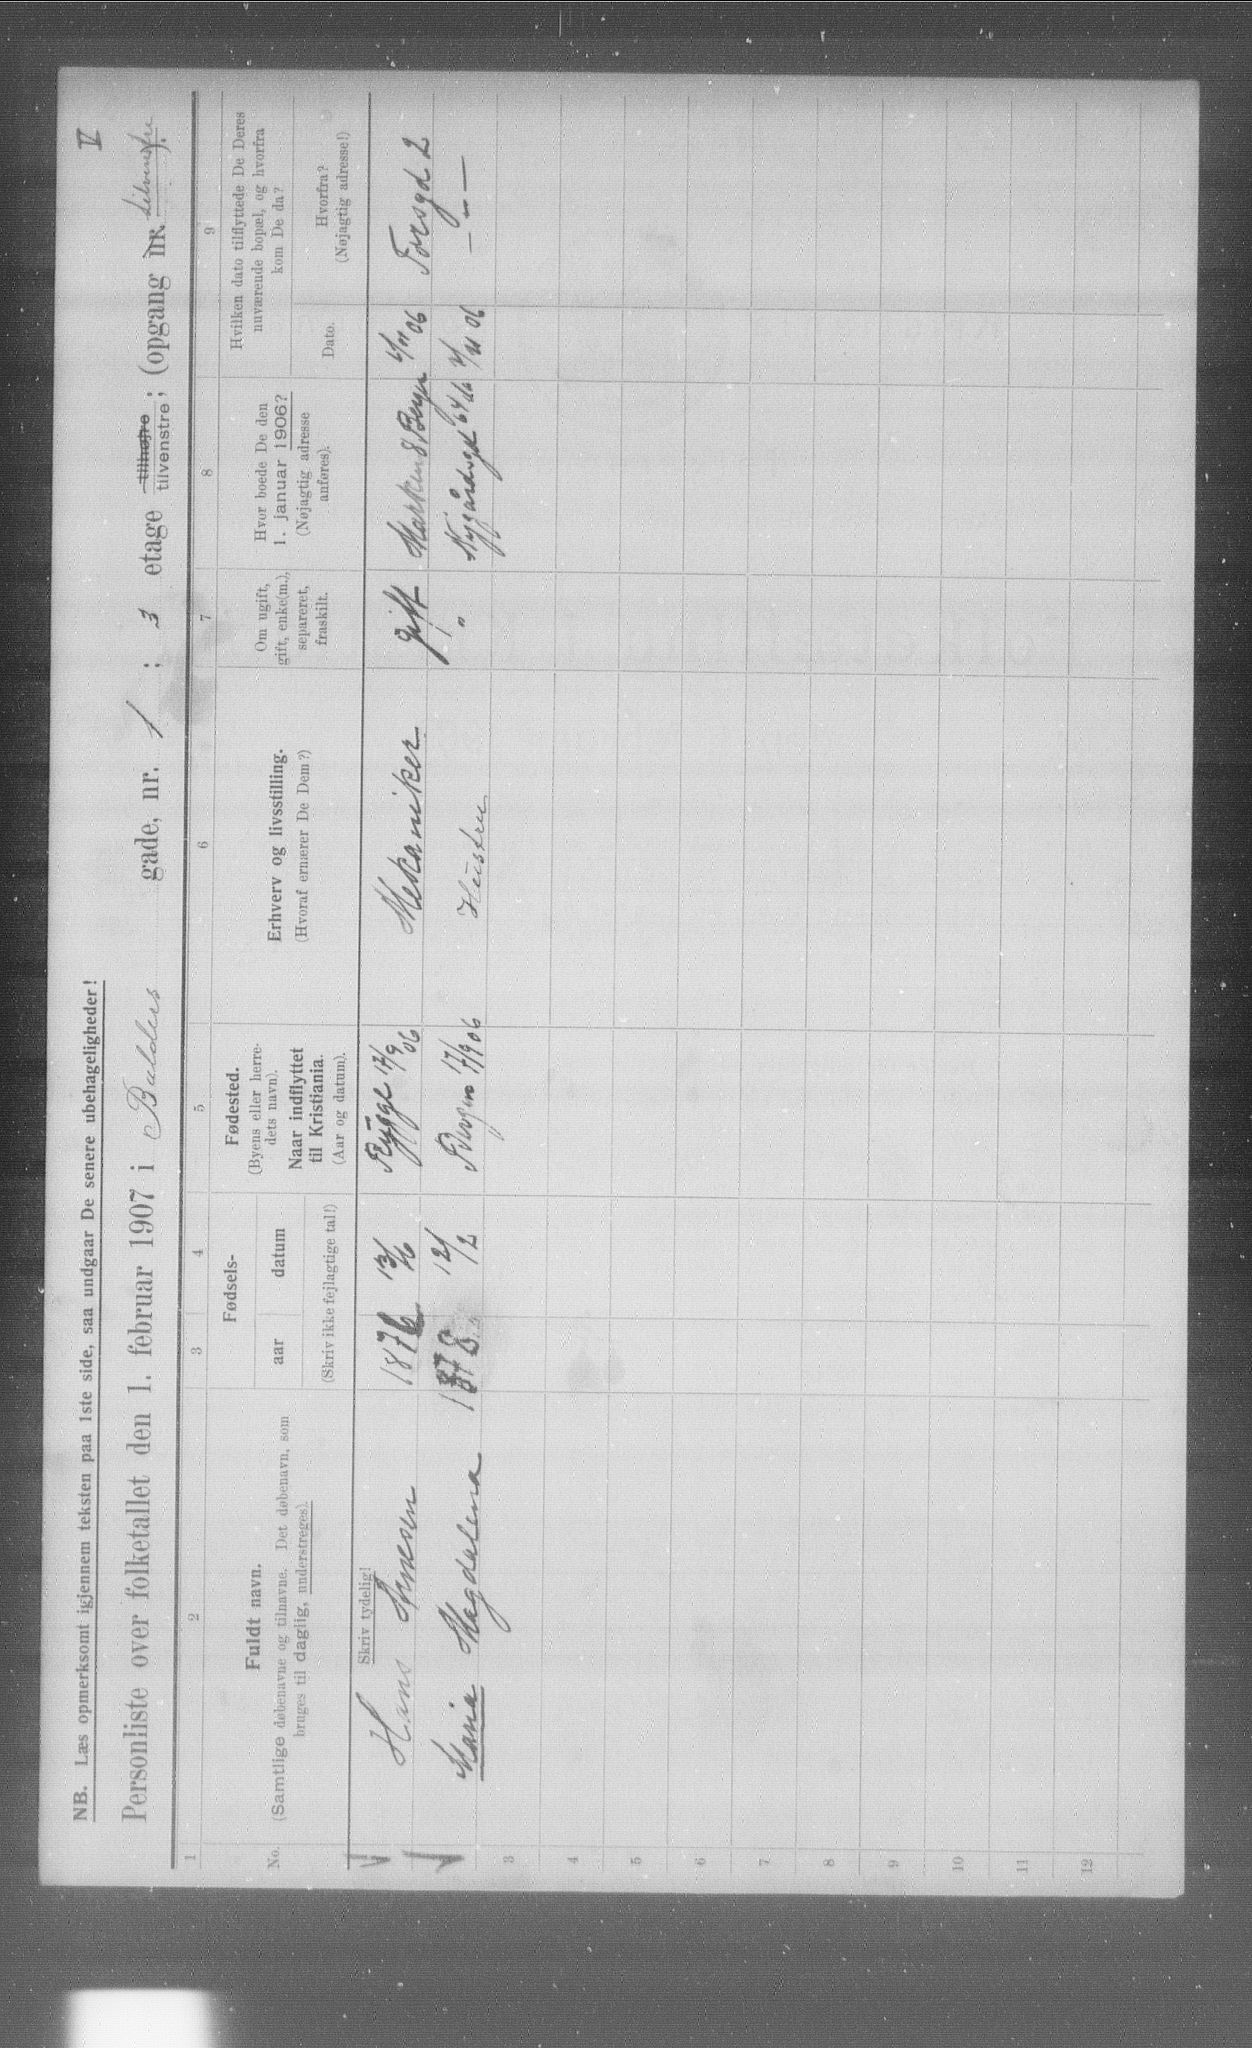 V
NB. Læs opmerksomt igjennem teksten paa 1ste side, saa undgaar De senere ubehageligheder!
Personliste over folketallet den 1. februar 1907 i Balders gade, nr. 1 ; 3 etage tilhøjre tilvenstre; (opgang nr.
1 2 3 4 5 6 7 8 9
No.
Fuldt navn.
(Samtlige døbenavne og tilnavne. Det døbenavn, som
bruges til daglig, understreges).
Fødsels-
aar datum
(Skriv ikke fejlagtige tal!)
Fødested.
(Byens eller herre-
dets navn).
Naar indflyttet
til Kristiania.
(Aar og datum).
Erhverv og livsstilling.
(Hvoraf ernærer De Dem?)
Om ugift,
gift, enke(m.),
separeret,
fraskilt.
Hvor boede De den
1. januar 1906?
(Nøjagtig adresse
anføres).
Hvilken dato tilflyttede De Deres
nuværende bopæl, og hvorfra
kom De da?
Dato.
Hvorfra?
(Nøjagtig adresse!)
Skriv tydelig!
Hans Arnesen 1876 13/6 Rygge 17/9 06 Mekaniker gift 8 Bergen /11 06 Torsgd 2
Maria Magdalena 1878 12/2 Bergen 17/9 06 Hustru " Nygårdsgd /11 06 — " —
3
4
5
6
7
8
9
10
11
12